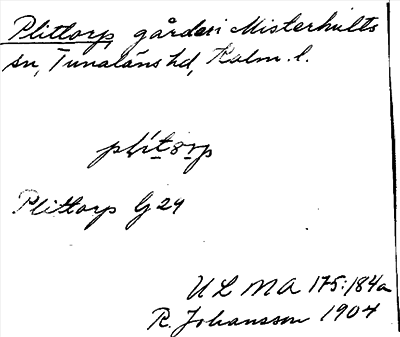 Plittorp, gård i Misterhults
sn, Tunaläns hd, Kalm. l.
Plittorp G 24
ULMA 175:184a
R. Johansson 1904